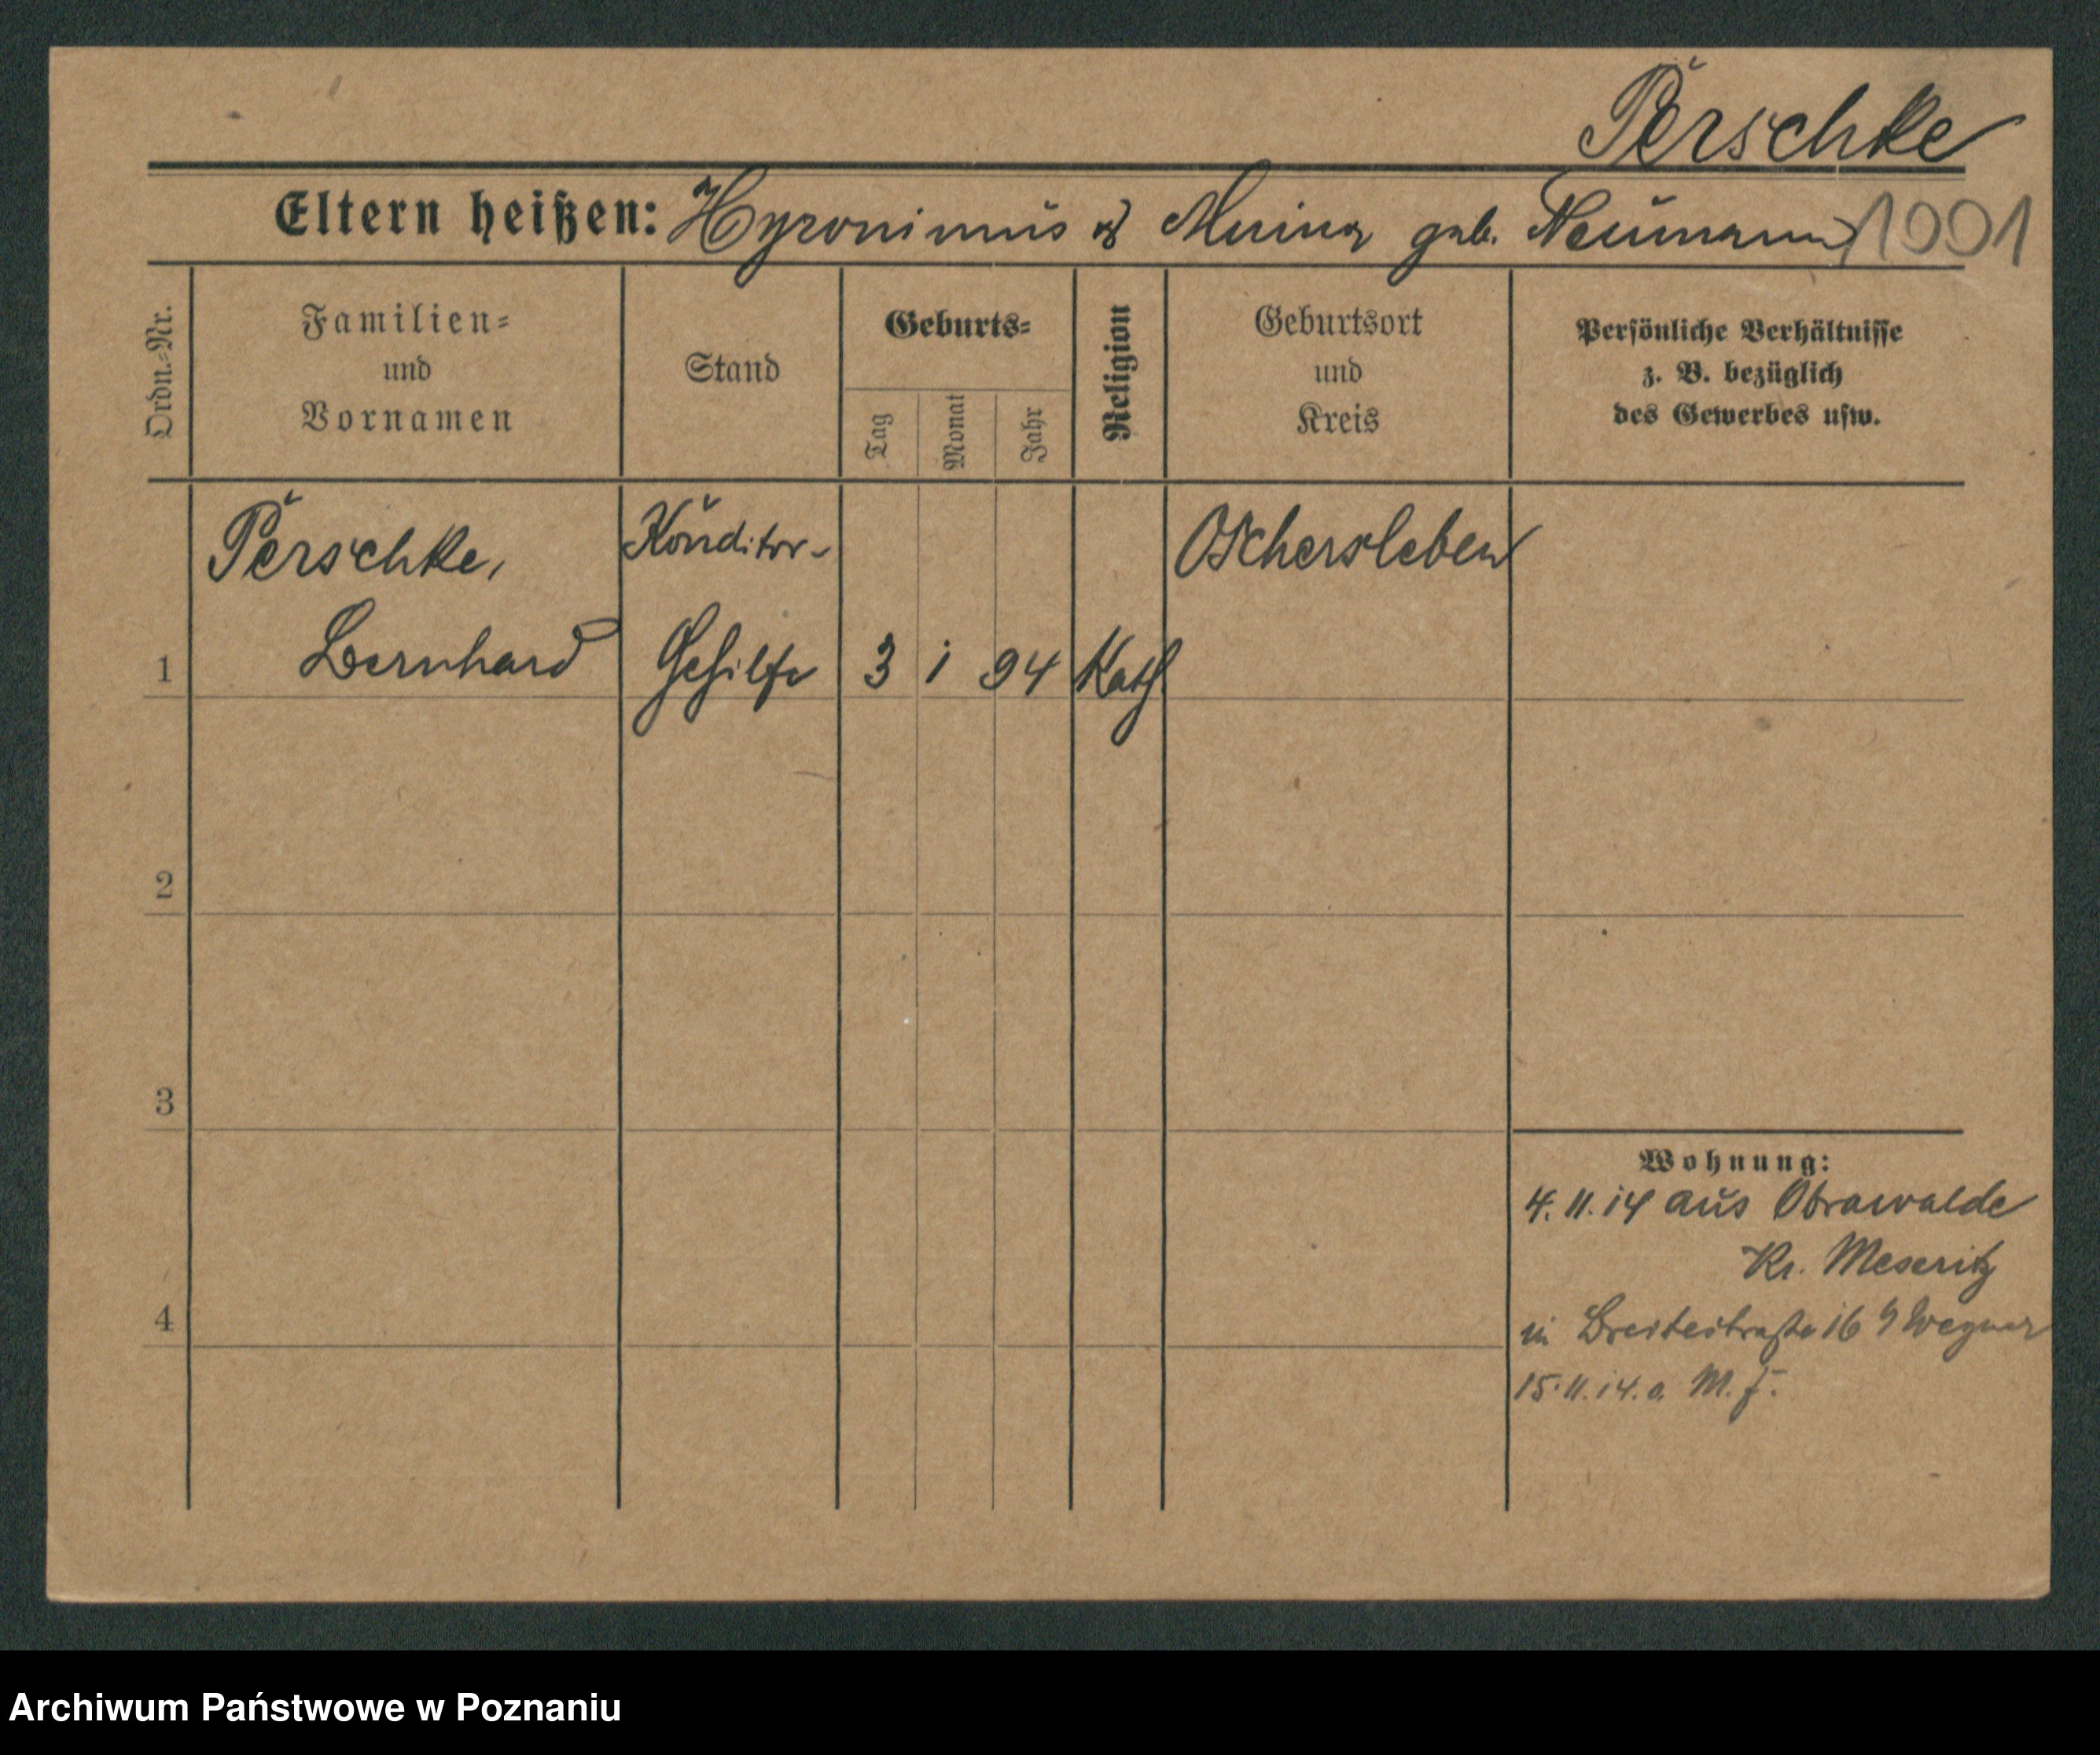 Perschke
Eltern heißen: Hyronimus & geb. Neumann 1001
Ordn.-Nr.
Familien-
und
Vornamen
Stand
Geburts-
Tag
Monat
Jahr
Religion
Geburtsort
und
Kreis
Persönliche Verhältnisse
z. B. bezüglich
des Gewerbes usw.
Perschke,
Konditor-
Oschersleben
1
Bernhard
Gehilfe
3
1
94
Kath.
2
3
4
Wohnung:
4.11.14 aus Obrawalde
Kr. Meseritz
in Breitestraße 16 Wegner
15.11.14. a. M. F.
Archiwum Państwowe w Poznaniu